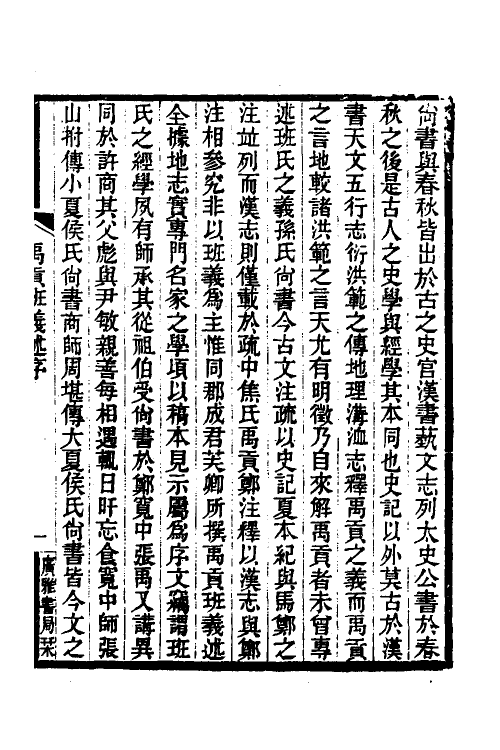 尙書與春秋皆出於古之史官漢書藝文志列太史公書於春
秋之後是古人之史學與經學其本同也史記以外莫古於漢
書天文五行志衍洪範之傳地理溝洫志釋禹貢之義而禹貢
之言地較諸洪範之言天尤有明徵乃自來解禹貢者未曾專
述班氏之義孫氏尙書今古文注疏以史記夏本紀與馬鄭之
注竝列而漢志則僅載於疏中焦氏禹貢鄭注釋以漢志與鄭
注相參究非以班義爲主惟同郡成君芙卿所撰禹貢班義述
全據地志實專門名家之學項以稿本見示屬爲序文竊謂班
氏之經學夙有師承其從祖伯受尙書於鄭寬中張禹又講異
同於許商其父彪與尹敏親善每相遇輒日旰忘食寬中師張
山拊傳小夏侯氏尙書商師周堪傳大夏侯氏尙書皆今文之
禹貢班義述序
一
廣雅書局栞